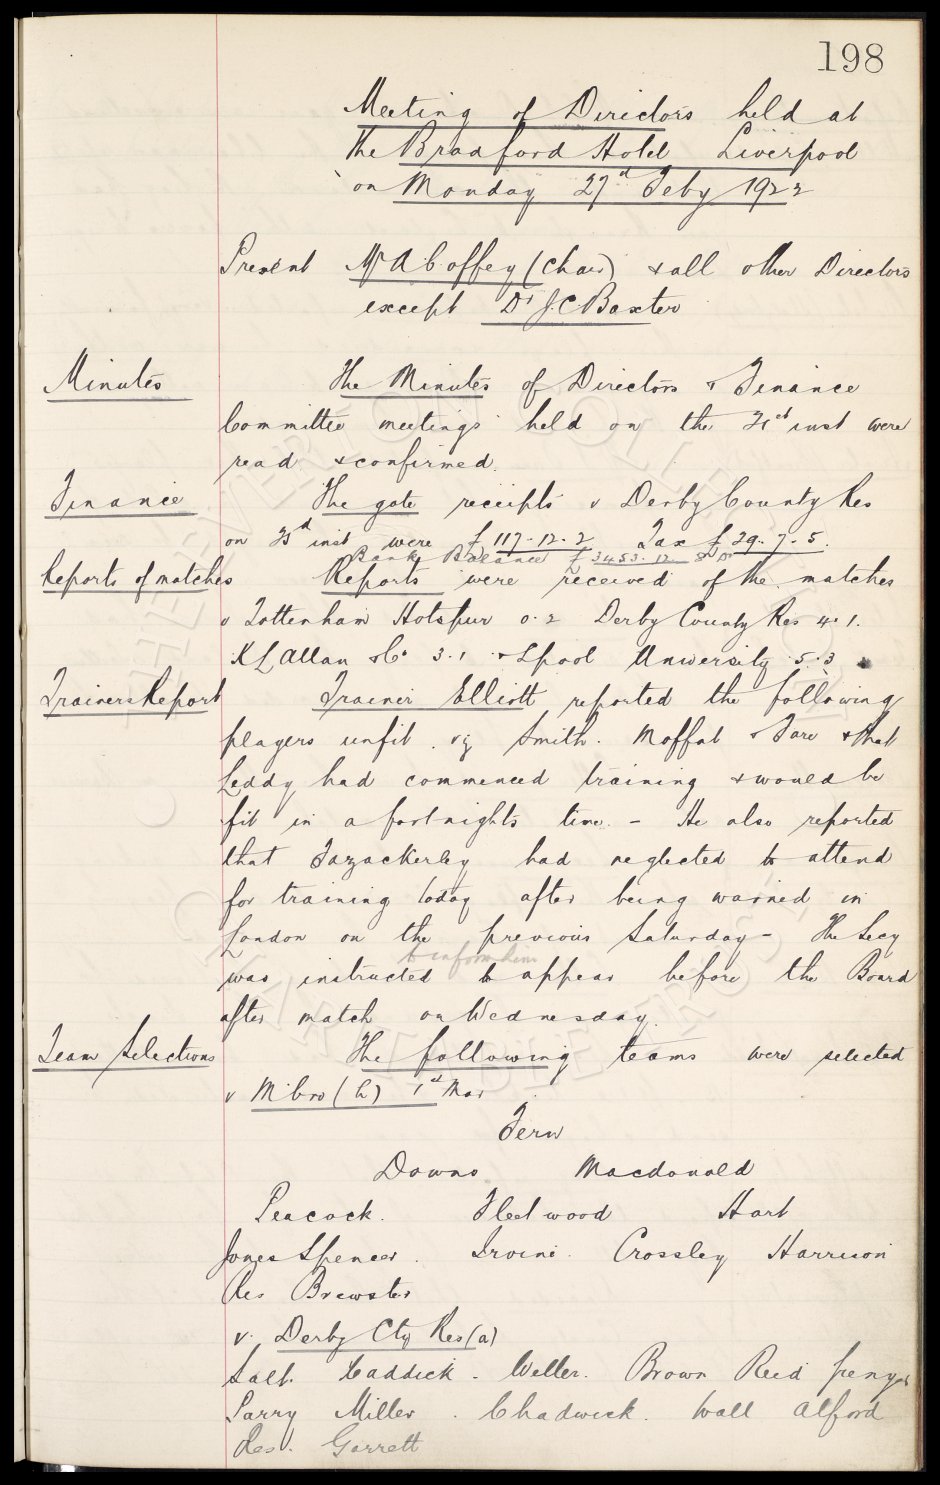 198
Meeting of Directors held at
the Bradford Hotel Liverpool
on Monday 27th Feby 1922
Present Mr A Coffey (Chair) & all other Directors
except Dr J.C. Baxter
Minutes The Minutes of Directors & Finance
Committee meetings held on the 21st inst were
read & confirmed.
Finance The gate receipts v Derby County Res
on inst were £117-12-2 Tax £29-7-5.
Bank Balance £3453-12-8
Reports of matches Reports were received of the matches
v Tottenham Hotspur 0-2 Derby County Res 4-1.
Allan & Co 3-1 & Lpool University 5-3
Trainers Report Trainer Elliott reported the following
players unfit viz Smith. Moffat & Fare & that
Leddy had commenced training & would be
fit in a fortnights time. - He also reported
that Fazackerley had neglected to attend
for training today after being warned in
London on the previous Saturday - The Secy
to inform him
was instructed to appear before the Board
after match on Wednesday.
Team Selections The following teams were selected
v M'bro (h) 1st Mar
Fern
Downs Macdonald
Peacock. Fleetwood Hart
Jones Spencer. Irvine. Crossley Harrison
Res Brewster
v. Derby Cty Res (a)
Salt. Caddick - Weller. Brown Reid
Parry Miller. Chadwick. Wall Alford
Res. Garrett